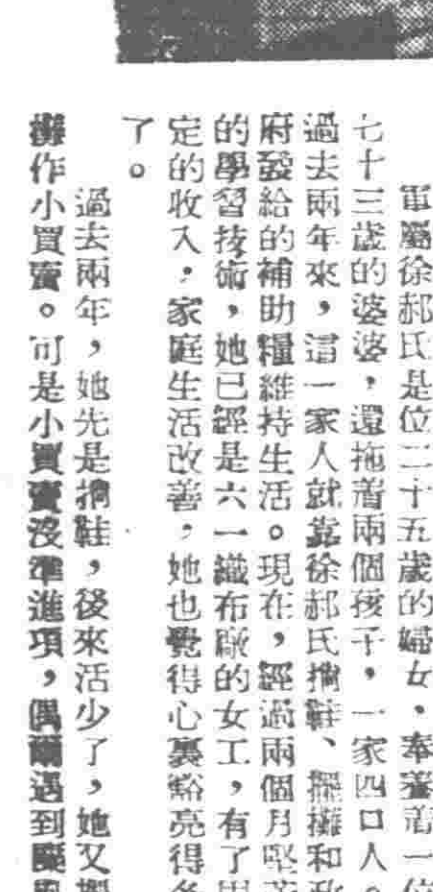 軍屬徐郝氏是位二十五歲的婦女，奉養着一位
七十三歲的婆婆，還拖着兩個孩子，一家四口人。
過去兩年來，這一家人就靠徐郝氏掮鞋、擺攤和政
府發給的補助糧維持生活。現在，經過兩個月堅苦
的學習技術，她已經是六一織布廠的女工，有了固
定的收入，家庭生活改善，她也覺得心裏豁亮得多
了。
過去兩年，她先是掮鞋，後來活少了，她又擺
攤作小買賣。可是小買賣沒準進項，偶爾遇到